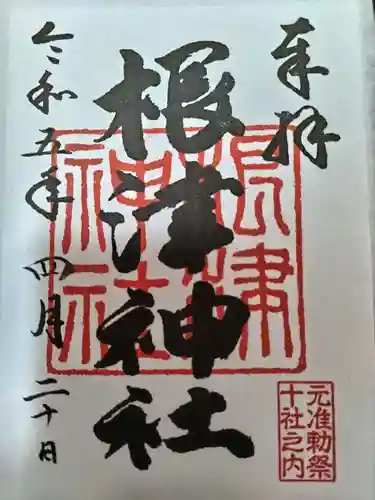 奉拝
根津神社
令和五年四月二十日
根津神社
元准勅祭
十社之内